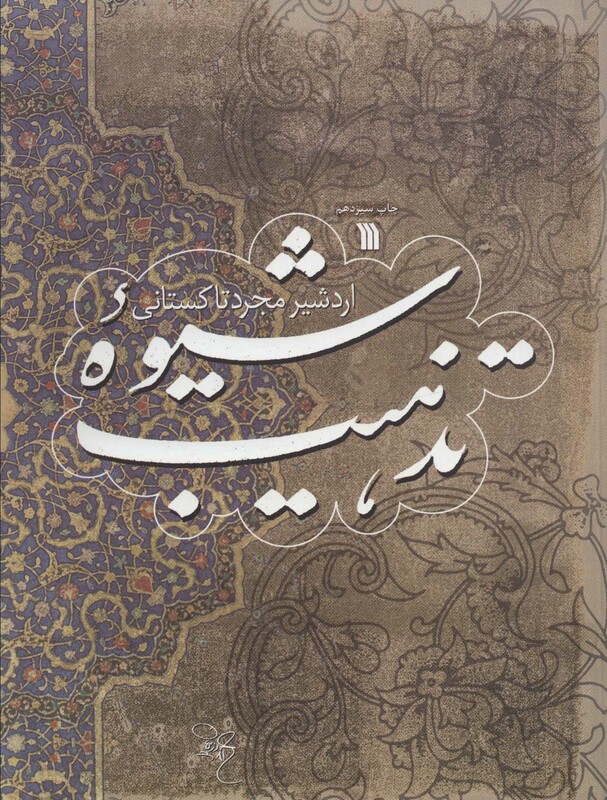 چاپ سیزدهم
اردشیر مجرد تاکستانی
شیوهٔ
تذهیب